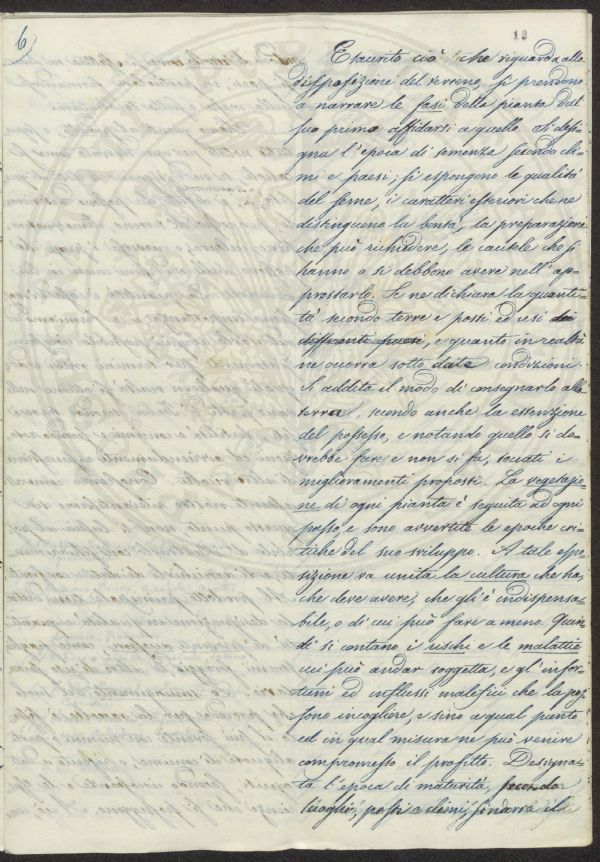 6
12
Esaurito ciò che riguarda alla
disposizione del terreno, si prendono
a narrare le fasi della pianta dal
suo primo affidarsi a quello. Si desi=
gna l'epoca di semenza secondo cli=
mi e paesi; si espongono le qualità
del seme, i caratteri esteriori che ne
distinguono la bontà, la preparazione
che può richiedere, le cautele che si
hanno o si debbono avere nell'ap=
prestarlo. Se ne dichiara la quanti=
tà secondo terre e possi ed usi dei
differenti paesi, e quanto in realtà
ne occorra sotto date condizioni.
Si addita il modo di consegnarlo alla
terra, secondo anche la estenzione
del possesso, e notando quello si do=
vrebbe fare e non si fa, toccati i
miglioramenti proposti. La vegetazio=
ne di ogni pianta è seguita ad ogni
passo, e sono avvertite le epoche cri=
tiche del suo sviluppo. A tale espo=
sizione va unita la cultura che ha,
che deve avere, che gli è indispensa=
bile, o di cui può fare a meno. Quin=
di si contano i rischi e le malattie
cui può andar soggetta, e gl'infor=
tuni ed influssi malefici che la pos=
sono incogliere, e sino a qual punto
ed in qual misura ne può venire
compromesso il profitto. Designa=
ta l'epoca di maturità, secondo
luoghi, possi e climi, si narra il